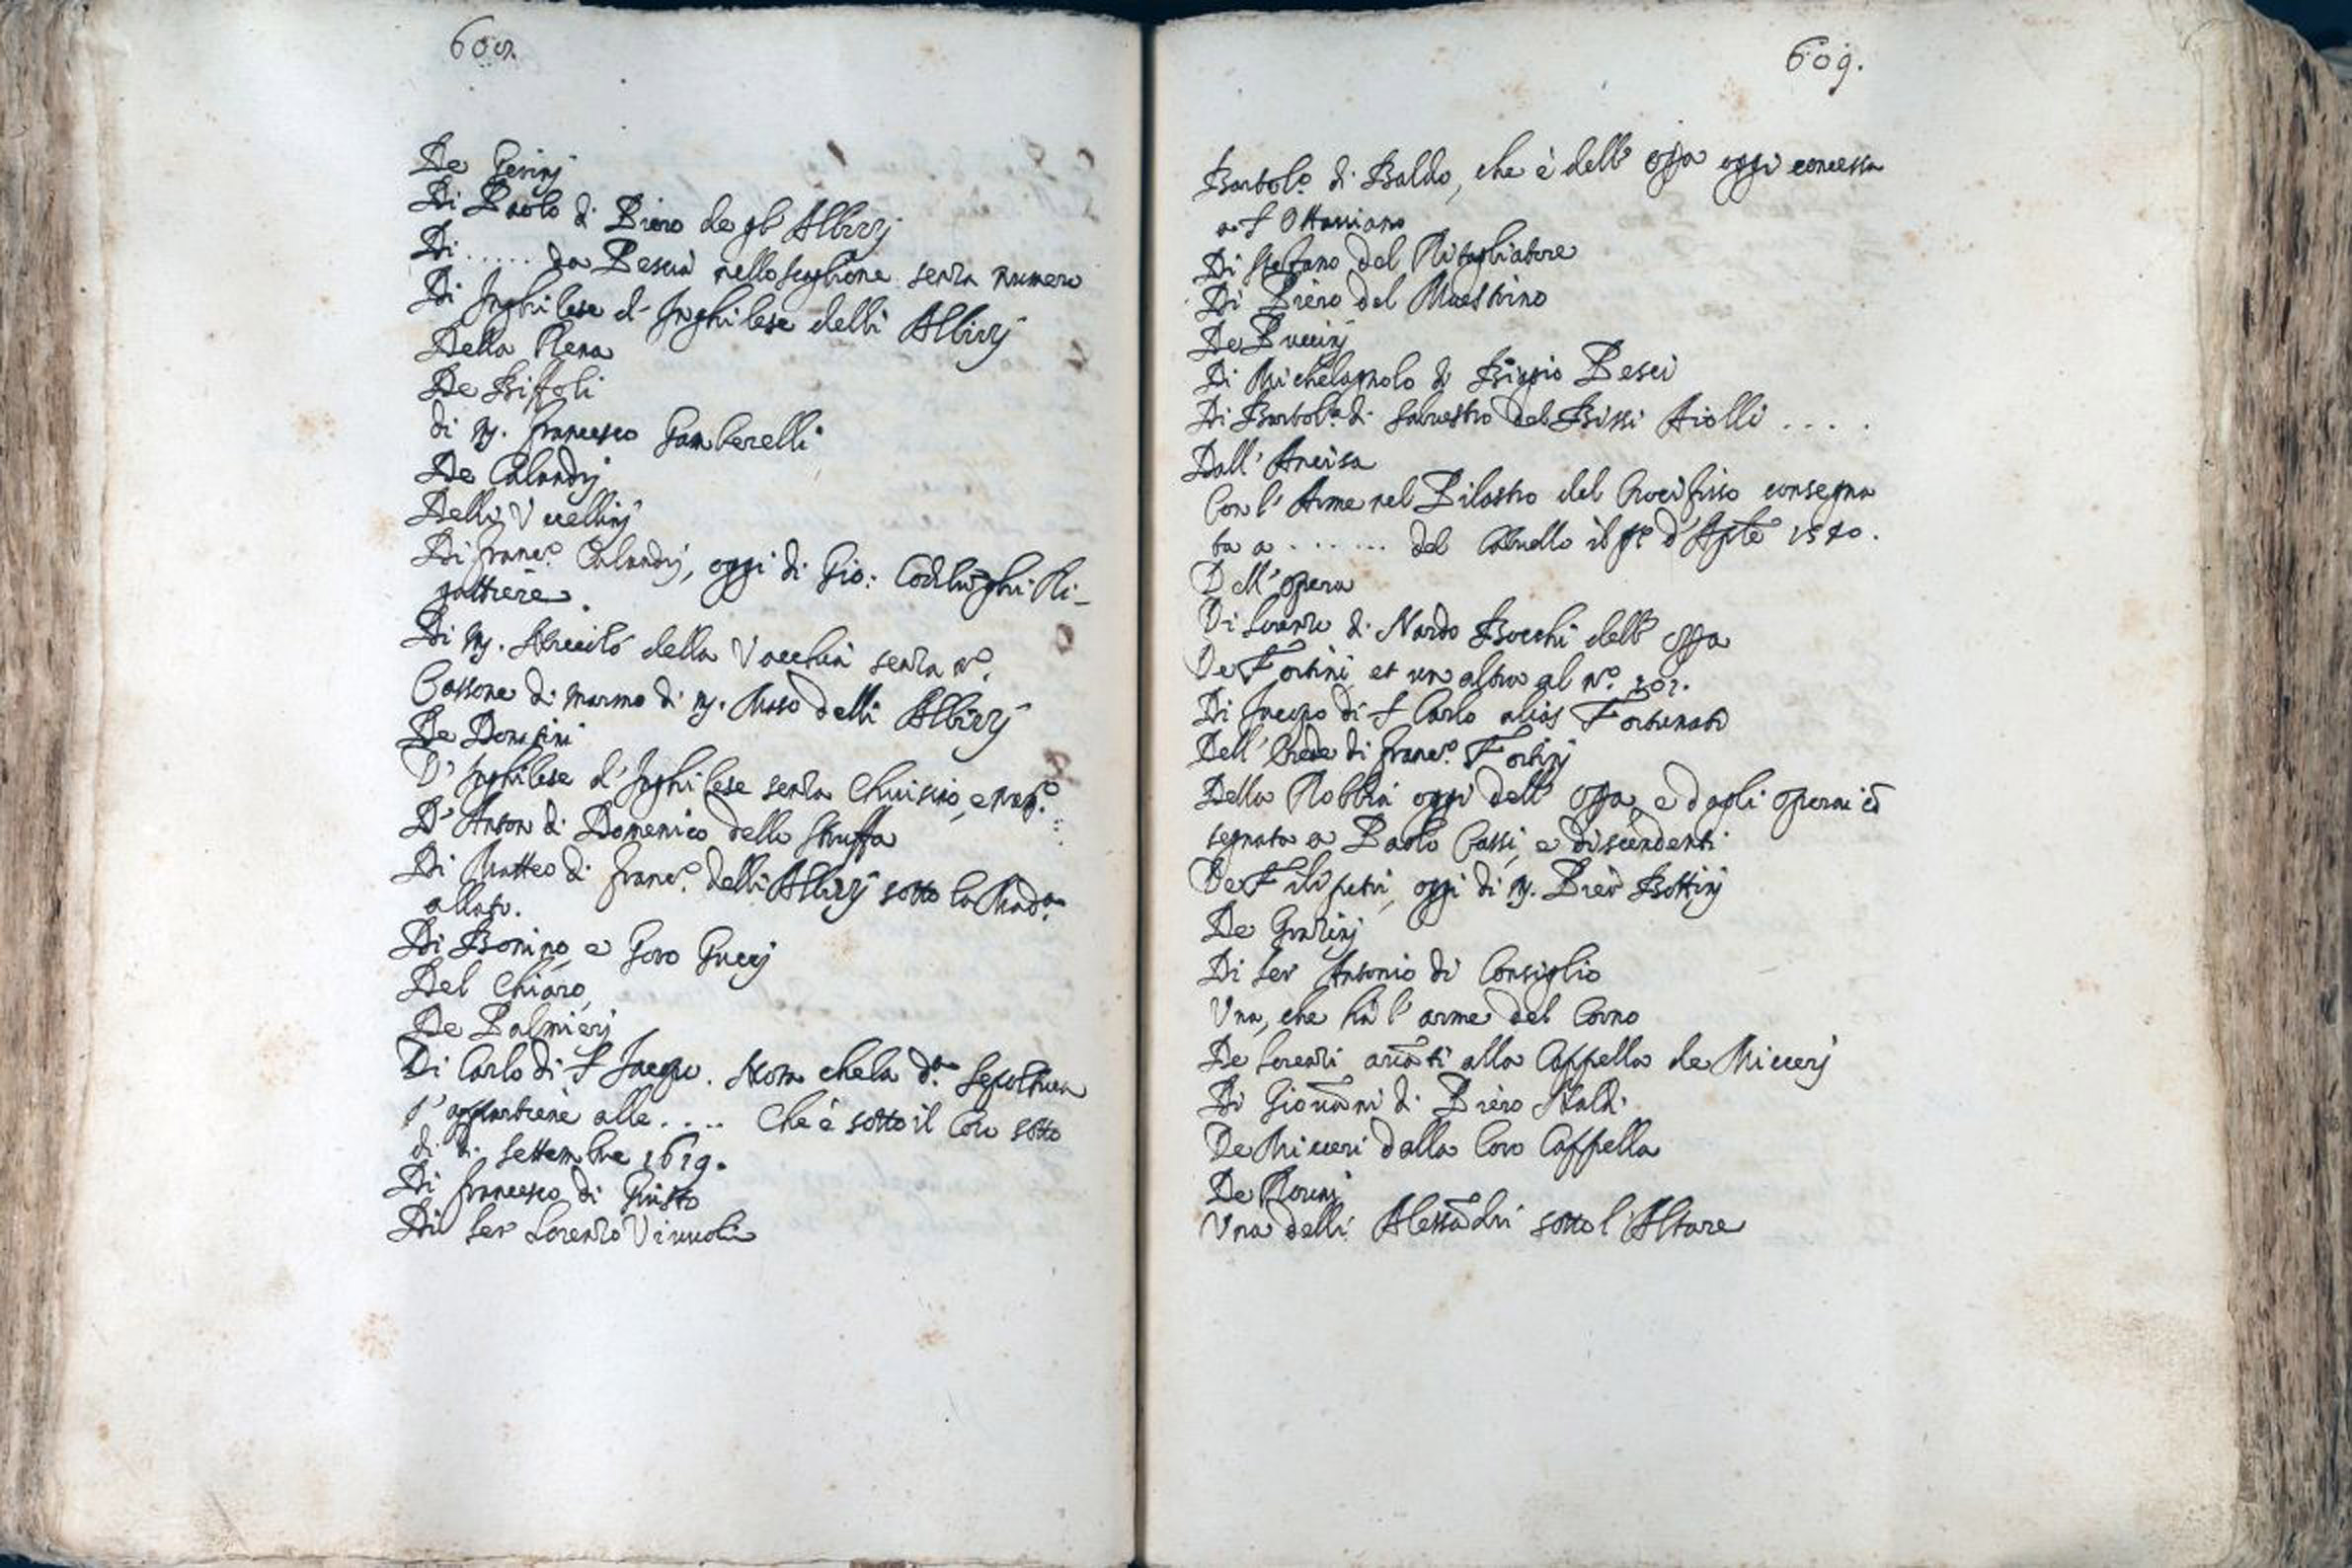 608.
De Gerinj
Di Paolo di Piero degl' Albizzj
Di ...... da Pescia nello scaglione senza numero
Di Inghilese d'Inghilese delli Albizzj
Della Rena
De Biffoli
di M. Francesco Gamberelli
De Calandrj
Delli Vccellinj
Di Franc.º Calandrj, oggi di Gio: Ri-
gattiere.
Di M. della Vacchia senza Nº.
Cassone di marmo di M. Maso delli Albizzj
De Donsini
D'Inghilese d'Inghilese senza Chiusino, e
D'Anton di Domenico dello Struffa
Di Matteo di Franc.º delli Albizzj sotto la Mad.ª
allato.
Di Bonino, e Goro Guccj
Del Chiaro,
De Palmierj
Di Carlo di S Jacopo. Nota che la d.ª Sepoltura
s'appartiene alle .... Che è sotto il Coro sotto
di settembre 1619.
Di Francesco di Giusto
Di Ser Lorenzo Vivuoli
609.
Bartol.º di Baldo, che è dell' opa oggi concessa
a S Ottaviano
Di Stefano del Ritagliatore
Di Piero del Maestrino
De Puccinj
Di Michelagnolo di Biagio Pesci
Di Bartol.º di Salvestro del Bissi Aiolli ....
Dall' Ancisa
Con l'Arme nel Pilastro del Crocifisso consegna
ta a ....... del il pº d'Aple 1570.
Dell' opera
Di Lorenzo di Nardo Bocchi dell' opa
De Fortini et un altra al Nº. 101.
Di Jacopo di S Carlo alias Fortunati
Dell' Erede di Franc.º Fortinj
Della Robbia oggi dell' opa, e dagli operai cō
segnata a Paolo Cassi, e discendenti
De Filipetri, oggi di M. Pier Bottinj
De Grazinj
Di Ser Antonio di Consiglio
Vna, che hà l'arme del Corno
De Lorenzi acātti alla Cappella de Miccerj
Di Giovāni di Piero
De Micceri dalla loro Cappella
De
Vna delli Alessādri sotto l'Altare